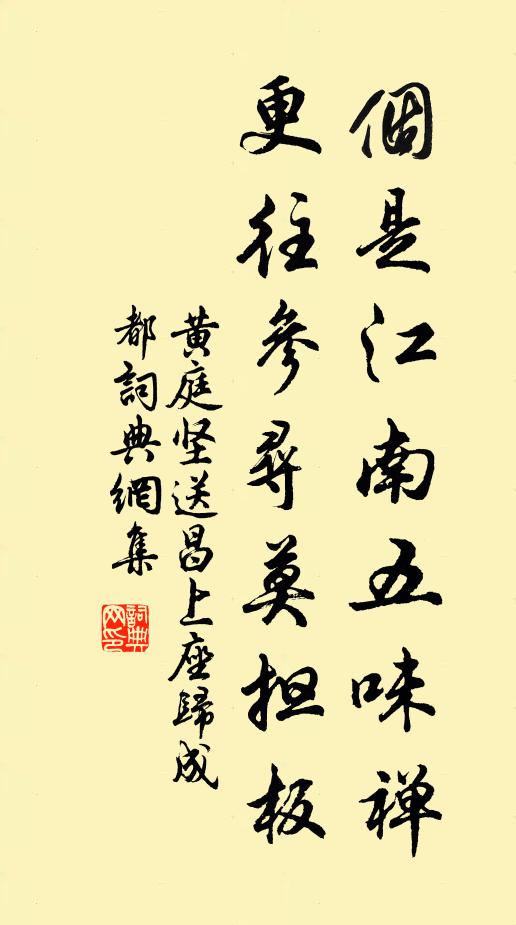 個是江南五味禅
更往參尋莫担板
黄庭坚送昌上座歸成
都詞典網集
詞典网印